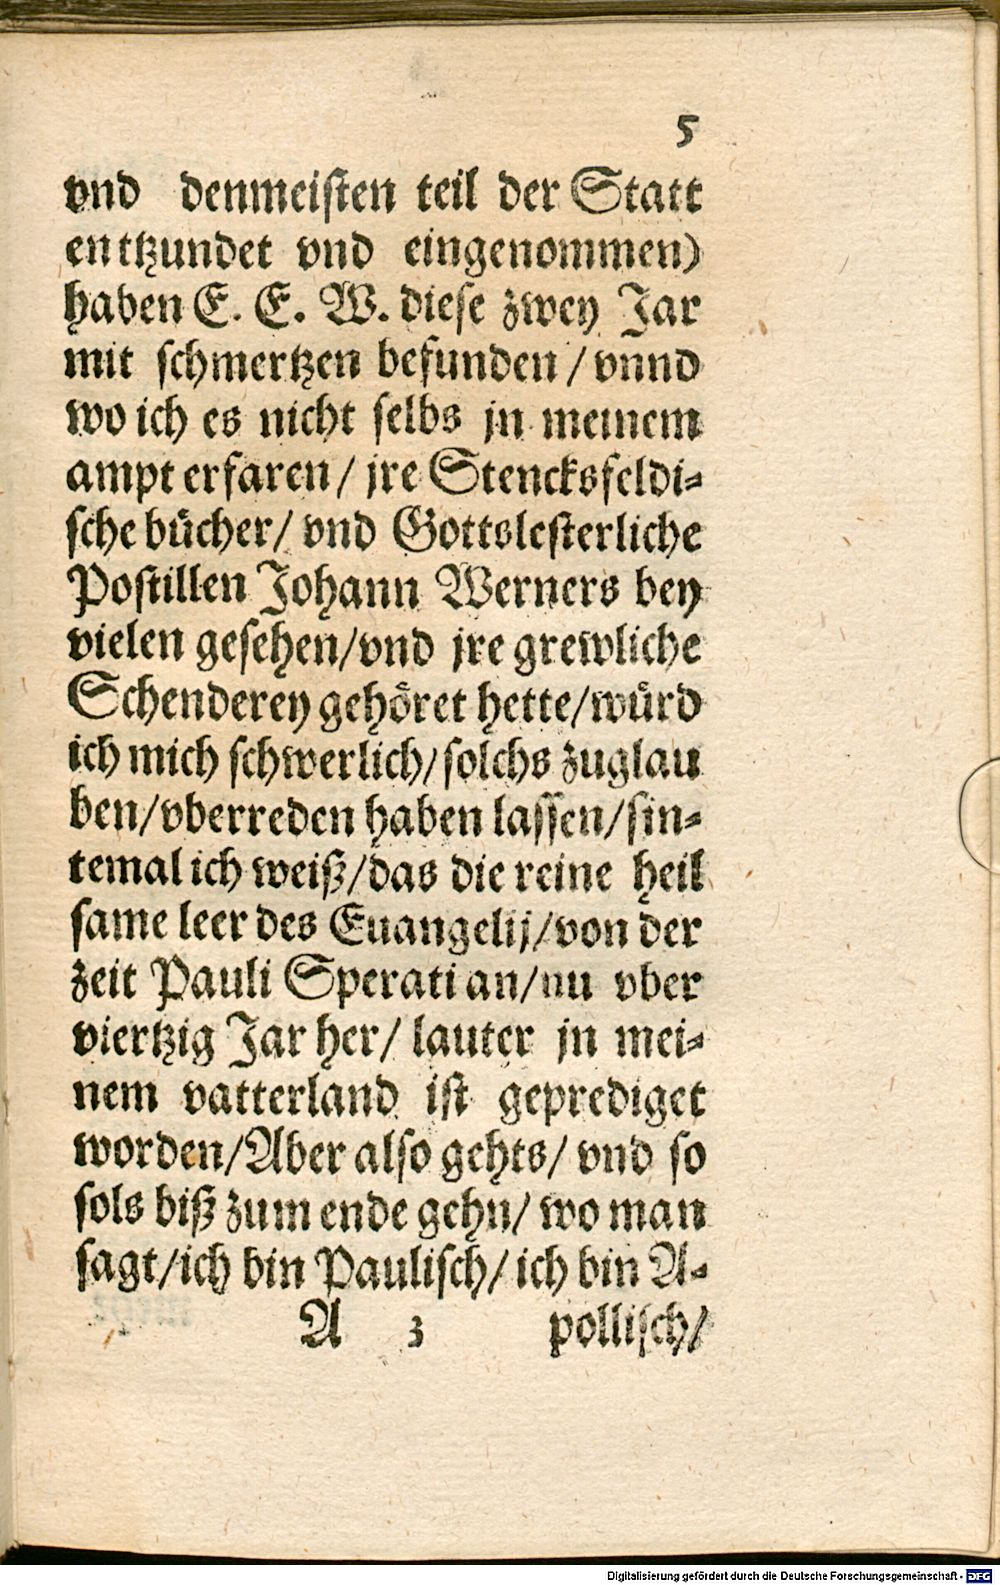 5
vnd denmeisten teil der Statt
enttzundet vnd eingenommen)
haben E. E. W. diese zwey Jar
mit schmertzen befunden / vnnd
wo ich es nicht selbs jn meinem
ampt erfaren / jre Stencksfeldi-
sche bücher / vnd Gottslesterliche
Postillen Johann Werners bey
vielen gesehen / vnd jre grewliche
Schenderey gehöret hette / würd
ich mich schwerlich / solchs zuglau
ben / vberreden haben lassen / sin-
temal ich weiß / das die reine heil
same leer des Euangelij / von der
zeit Pauli Sperati an / nu vber
viertzig Jar her / lauter jn mei-
nem vatterland ist geprediget
worden / Aber also gehts / vnd so
sols biß zum ende gehn / wo man
sagt / ich bin Paulisch / ich bin A-
A 3 pollisch /
Digitalisierung gefördert durch die Deutsche Forschungsgemeinschaft - DFG